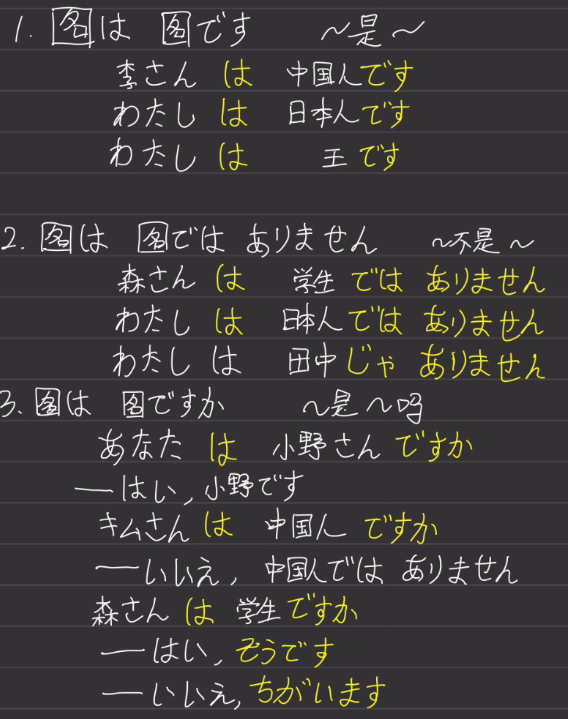 1. 名は 名です ～是～
李さん は 中国人です
わたし は 日本人です
わたし は 王 です
2. 名は 名では ありません ～不是～
森さん は 学生 では ありません
わたし は 日本人 では ありません
わたし は 田中 じゃ ありません
3. 名は 名ですか ～是～吗
あなた は 小野さん ですか
—はい, 小野です
キムさん は 中国人 ですか
—いいえ, 中国人では ありません
森さん は 学生ですか
—はい, そうです
—いいえ, ちがいます